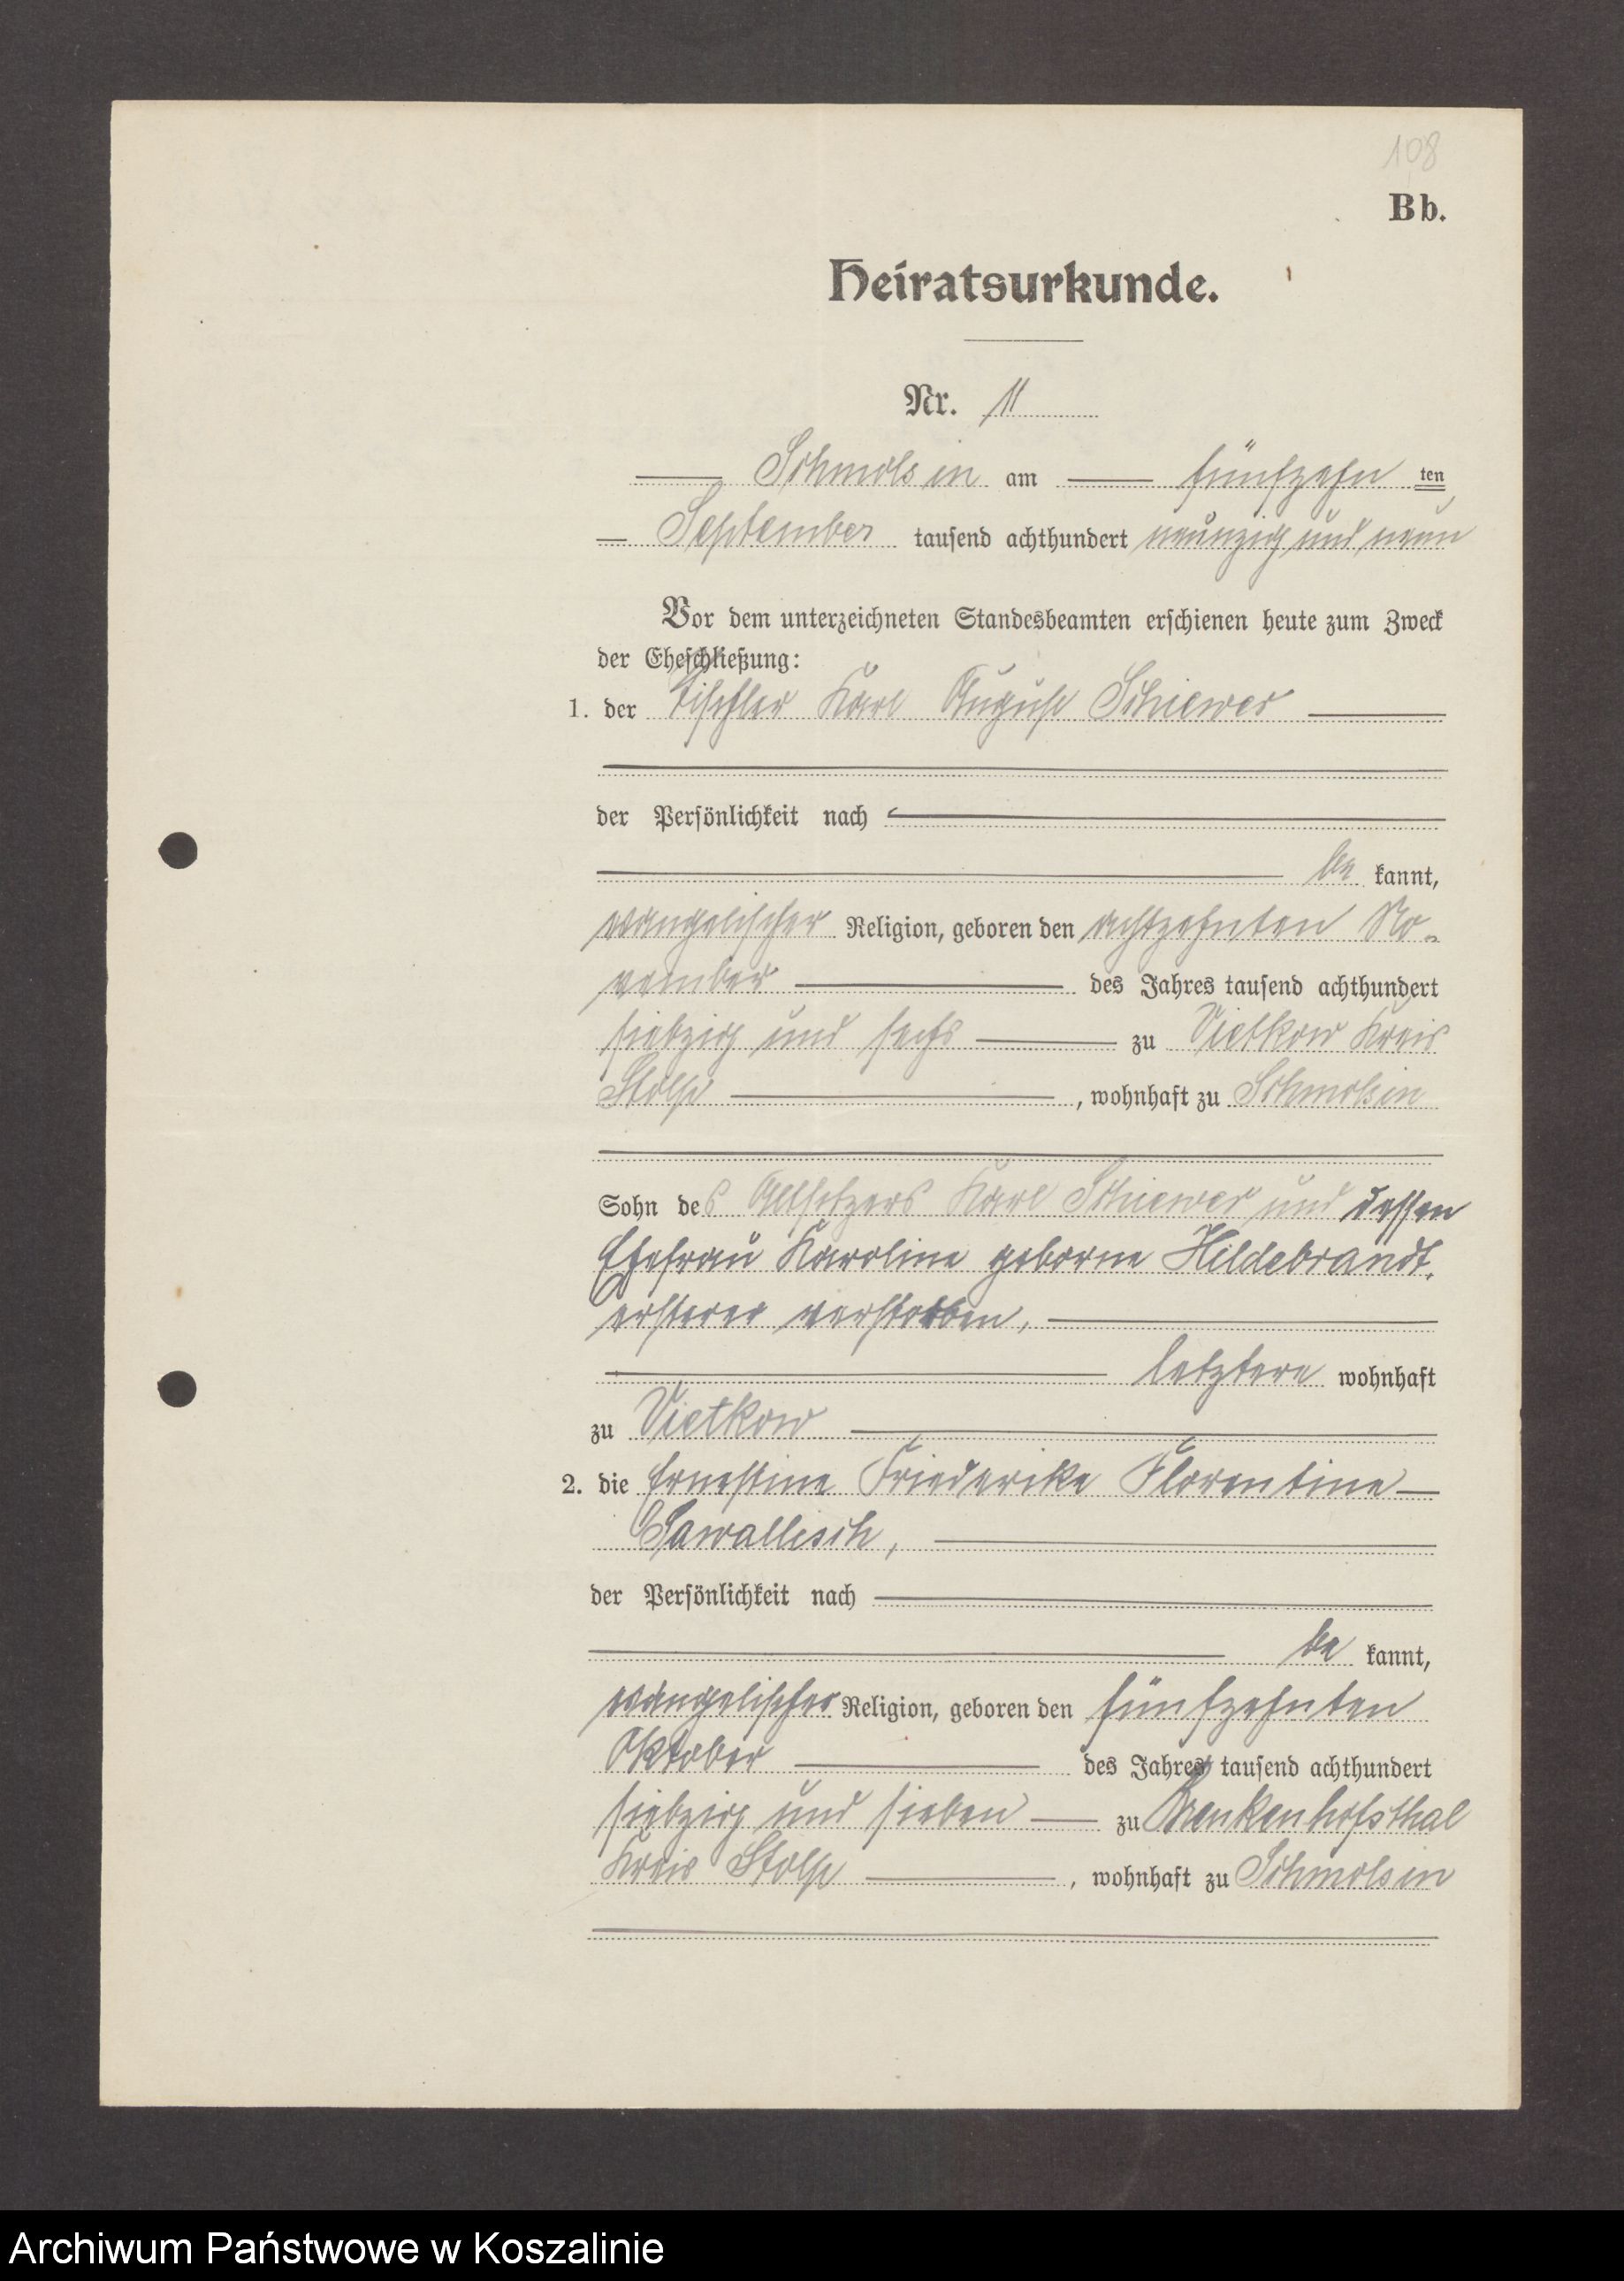 108
Bb.
Heiratsurkunde.
Nr. 11
Schmolsin am fünfzehn ten
September tausend achthundert neunzig und neun
Vor dem unterzeichneten Standesbeamten erschienen heute zum Zweck
der Eheschließung:
1. der Tischler Karl August Schiewer
der Persönlichkeit nach
be kannt,
evangelischer Religion, geboren den achtzehnten No-
vember des Jahres tausend achthundert
siebzig und sechs zu Vietkow Kreis
Stolp , wohnhaft zu Schmolsin
Sohn des Altsitzers Karl Schiewer und dessen
Ehefrau Karoline geborne Hildebrandt,
ersterer verstorben,
letztere wohnhaft
zu Vietkow
2. die Ernestine Friederike Florentine
Sawallisch,
der Persönlichkeit nach
be kannt,
evangelischer Religion, geboren den fünfzehnten
Oktober des Jahres tausend achthundert
siebzig und sieben zu Brenkenhofsthal
Kreis Stolp , wohnhaft zu Schmolsin
Archiwum Państwowe w Koszalinie